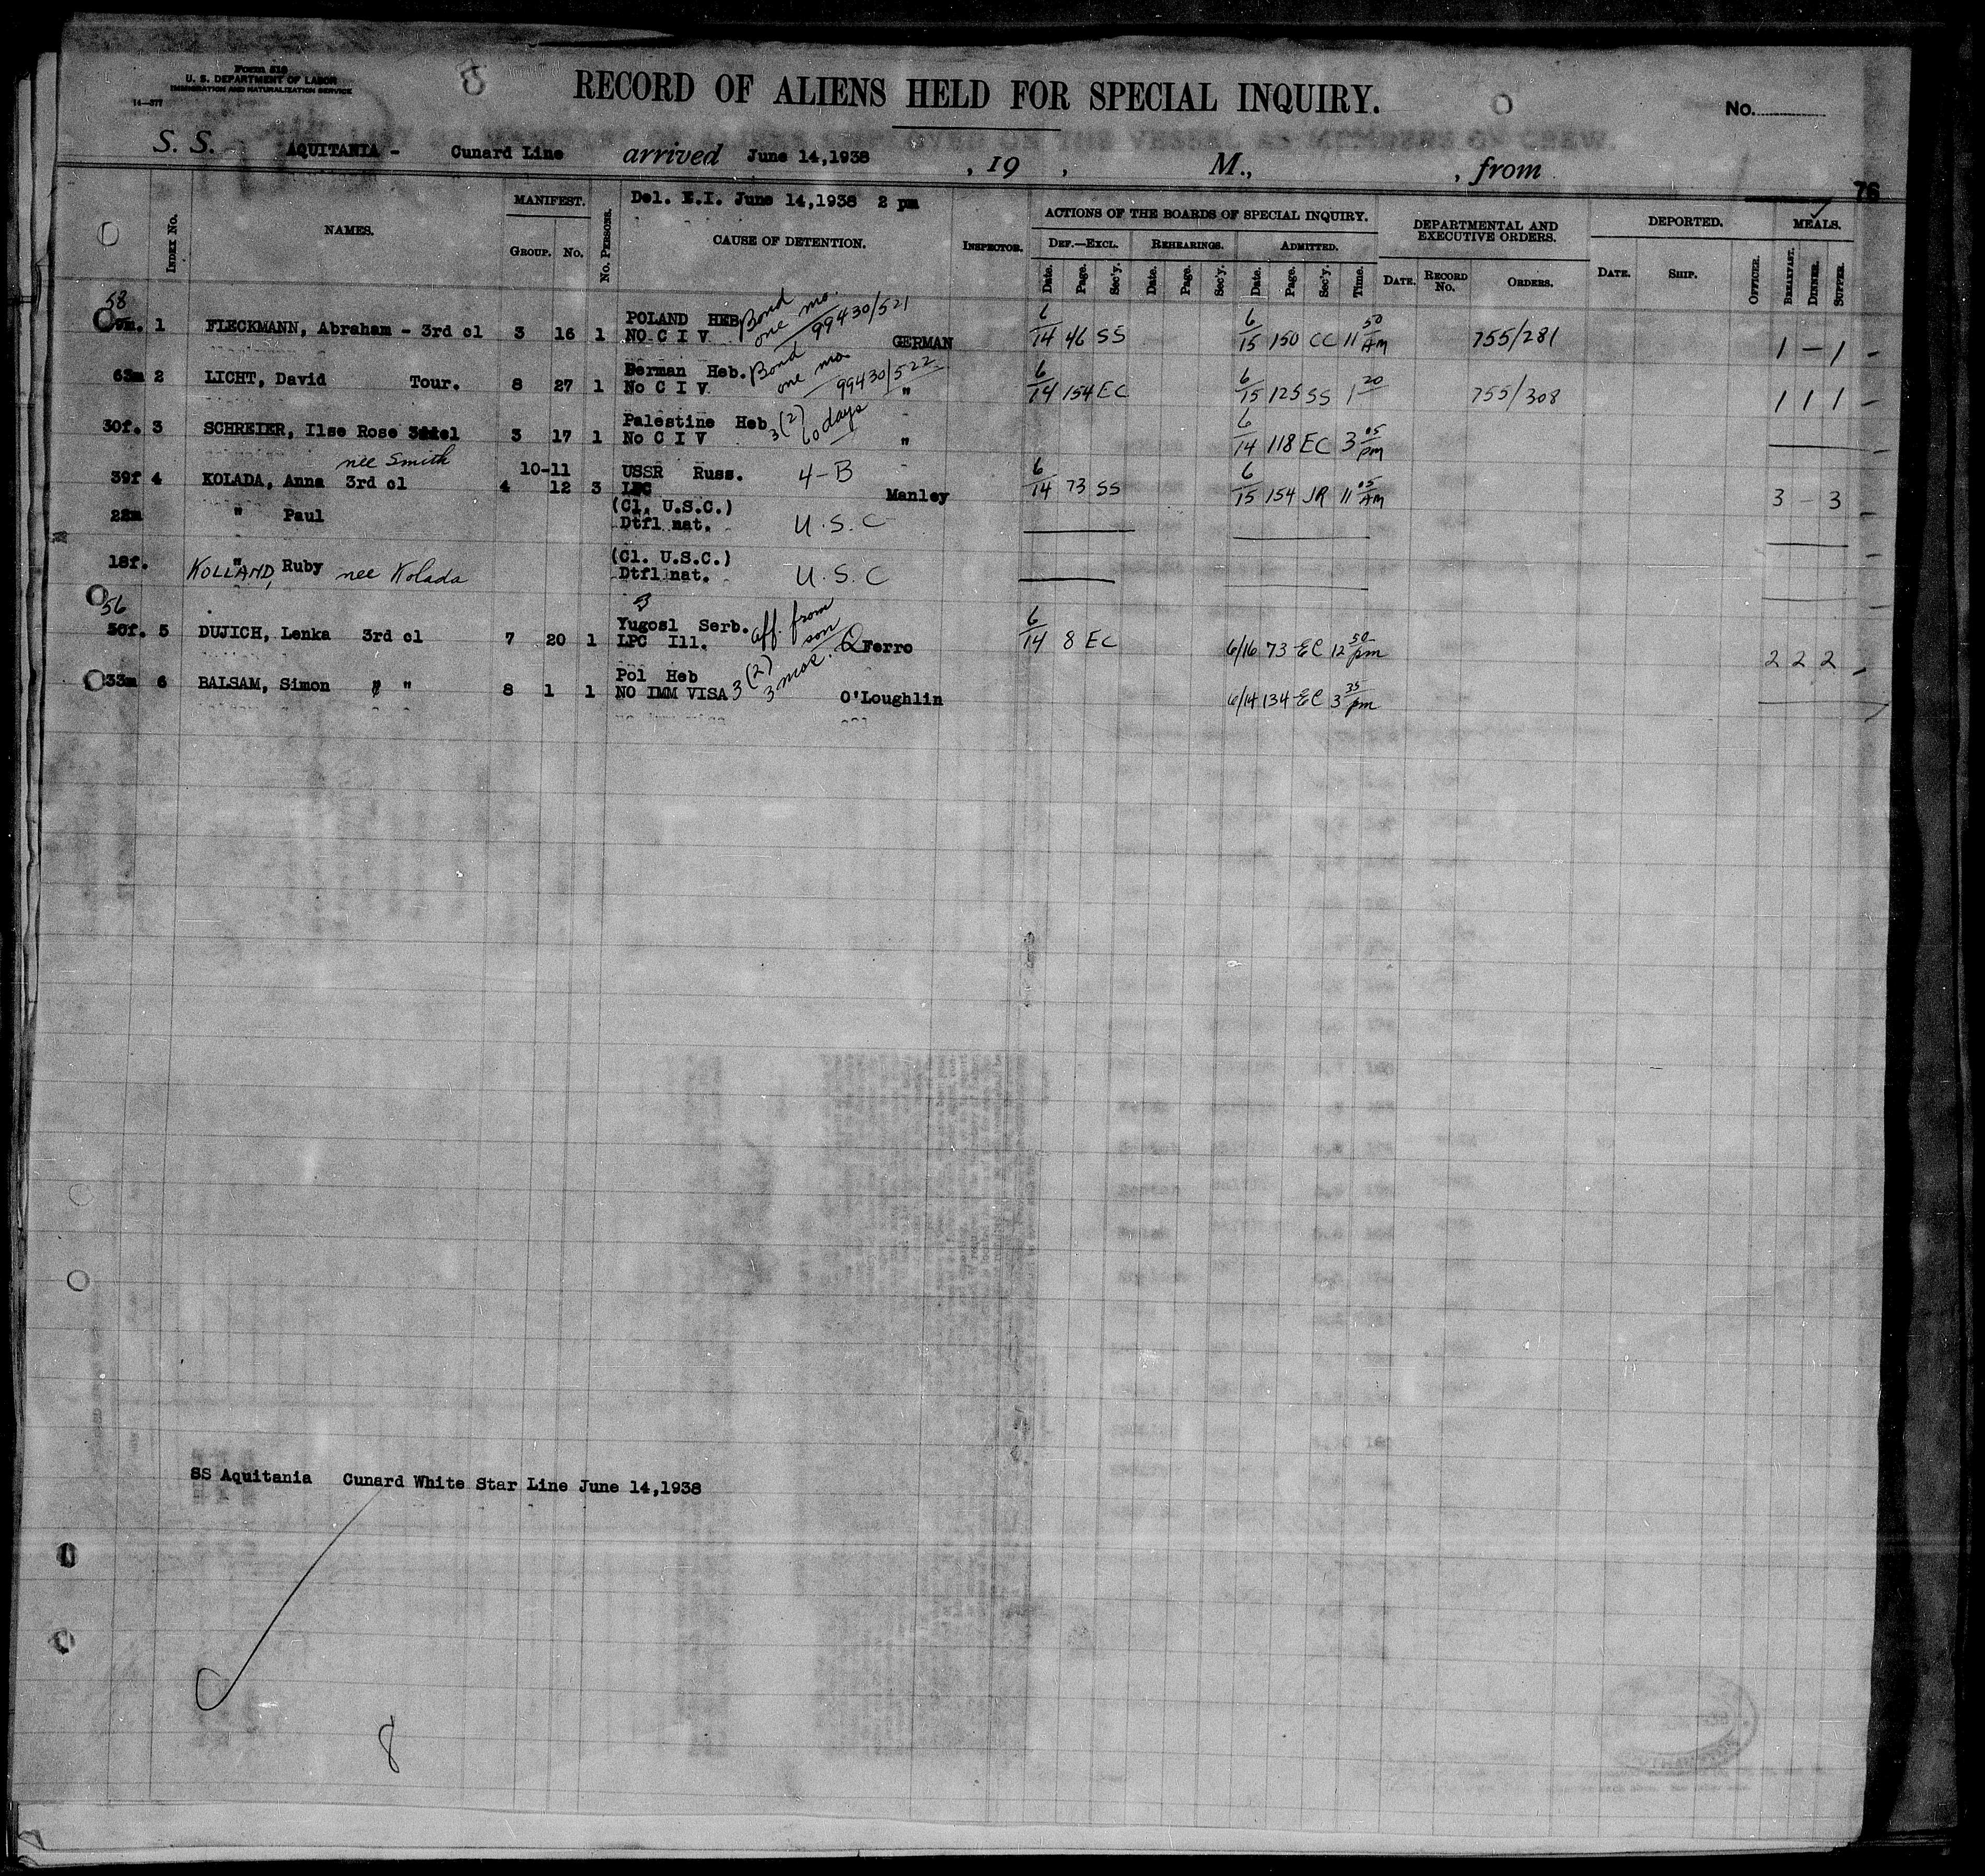 Form 510
U. S. DEPARTMENT OF LABOR
IMMIGRATION AND NATURALIZATION SERVICE
14—577
8
RECORD OF ALIENS HELD FOR SPECIAL INQUIRY.
No.
S. S. AQUITANIA - Cunard Line arrived June 14,1938 , 19 , M., , from
76
Del. E.I. June 14,1938 2 pm
INDEX No. NAMES. MANIFEST. GROUP. No. No. PERSONS. CAUSE OF DETENTION. INSPECTOR. ACTIONS OF THE BOARDS OF SPECIAL INQUIRY. DEPARTMENTAL AND EXECUTIVE ORDERS. DEPORTED. MEALS.
DEF.—EXCL. REHEARINGS. ADMITTED.
Date. Page. Sec'y. Date. Page. Sec'y. Date. Page. Sec'y. Time. DATE. RECORD No. ORDERS. DATE. SHIP. OFFICER. BREAKFAST. DINNER. SUPPER.
58 POLAND HEB Bond one mo. 99430/521
1 FLECKMANN, Abraham - 3rd cl 3 16 1 NO C I V GERMAN 6/14 46 SS 6/15 150 CC 11 50 AM 755/281 1 – 1 –
German Heb. Bond one mo 99430/522
63m 2 LICHT, David Tour. 8 27 1 No C I V " 6/14 154 EC 6/15 125 SS 1 20 755/308 1 1 1 –
Palestine Heb 3(2) 60 days
30f. 3 SCHREIER, Ilse Rose 3rd cl 3 17 1 No C I V " 6/14 118 EC 3 05 pm
nee Smith 10-11 USSR Russ. 4-B
39f 4 KOLADA, Anna 3rd cl 4 12 3 LPC Manley 6/14 73 SS 6/15 154 JR 11 05 AM 3 – 3 –
(Cl. U.S.C.)
22m " Paul Dtfl nat. U.S.C
(Cl. U.S.C.)
18f. " KOLLAND, Ruby nee Kolada Dtfl nat. U.S.C
3
56 Yugosl Serb. aff. from son
50f. 5 DUJICH, Lenka 3rd cl 7 20 1 LPC Ill. Ferro 6/14 8 EC 6/16 73 EC 12 50 pm 2 2 2 –
Pol Heb 3(2) 3 mos.
33m 6 BALSAM, Simon " " 8 1 1 NO IMM VISA O'Loughlin 6/14 134 EC 3 35 pm
SS Aquitania Cunard White Star Line June 14,1938
8